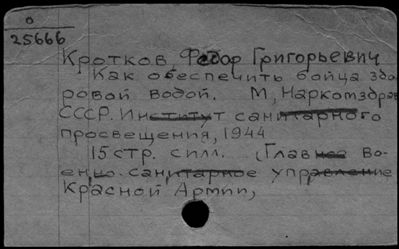 0
25666
Кротков, Федор Григорьевич
Как обеспечить бойца здо
ровой водой. М, Наркомздрав
СССР. Институт санитарного
просвещения, 1944
15 стр. с илл. (Главное Во-
енно-санитарное управление
Красной Армии,